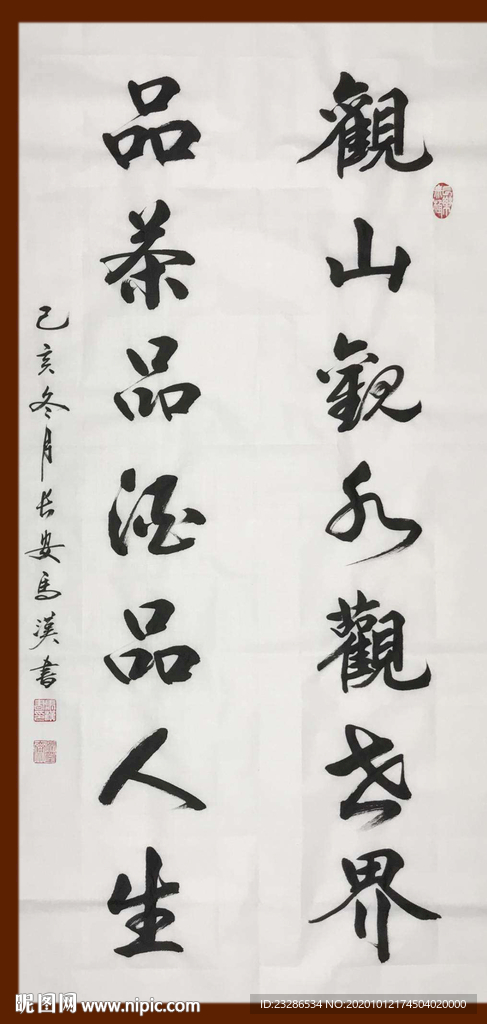 觀山觀水觀世界
品茶品酒品人生
己亥冬月長安馬漢書
昵图网 www.nipic.com
ID:23286534 NO:20201012174504020000